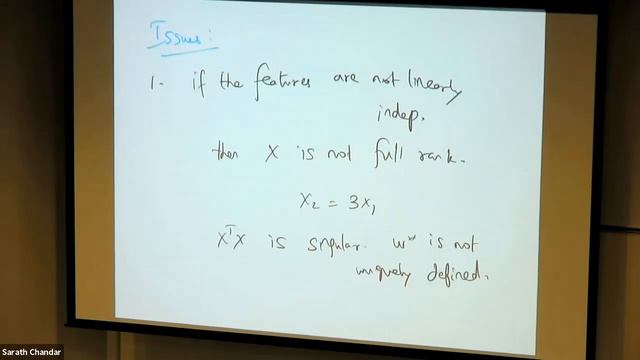 Issues:
1. if the features are not linearly
indep.
then X is not full rank.
x₂ = 3x₁
XᵀX is singular. w* is not
uniquely defined.
Sarath Chandar